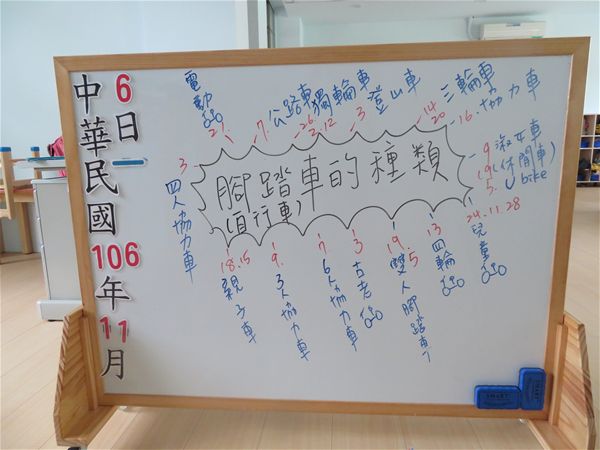 中華民國
106
年
11
月
6
日
腳踏車的種類
(自行車)
電動
27.
公路車
7.
獨輪車
26.
2.12
登山車
3
三輪車
14
20
協力車
16.
淑女車
9
(休閒車)
U bike
5.
兒童
24.11.28
四輪
13
雙人腳踏車
19.
5
古老
3
6人協力車
7.
3人協力車
9.
親子車
18.15
四人協力車
3.